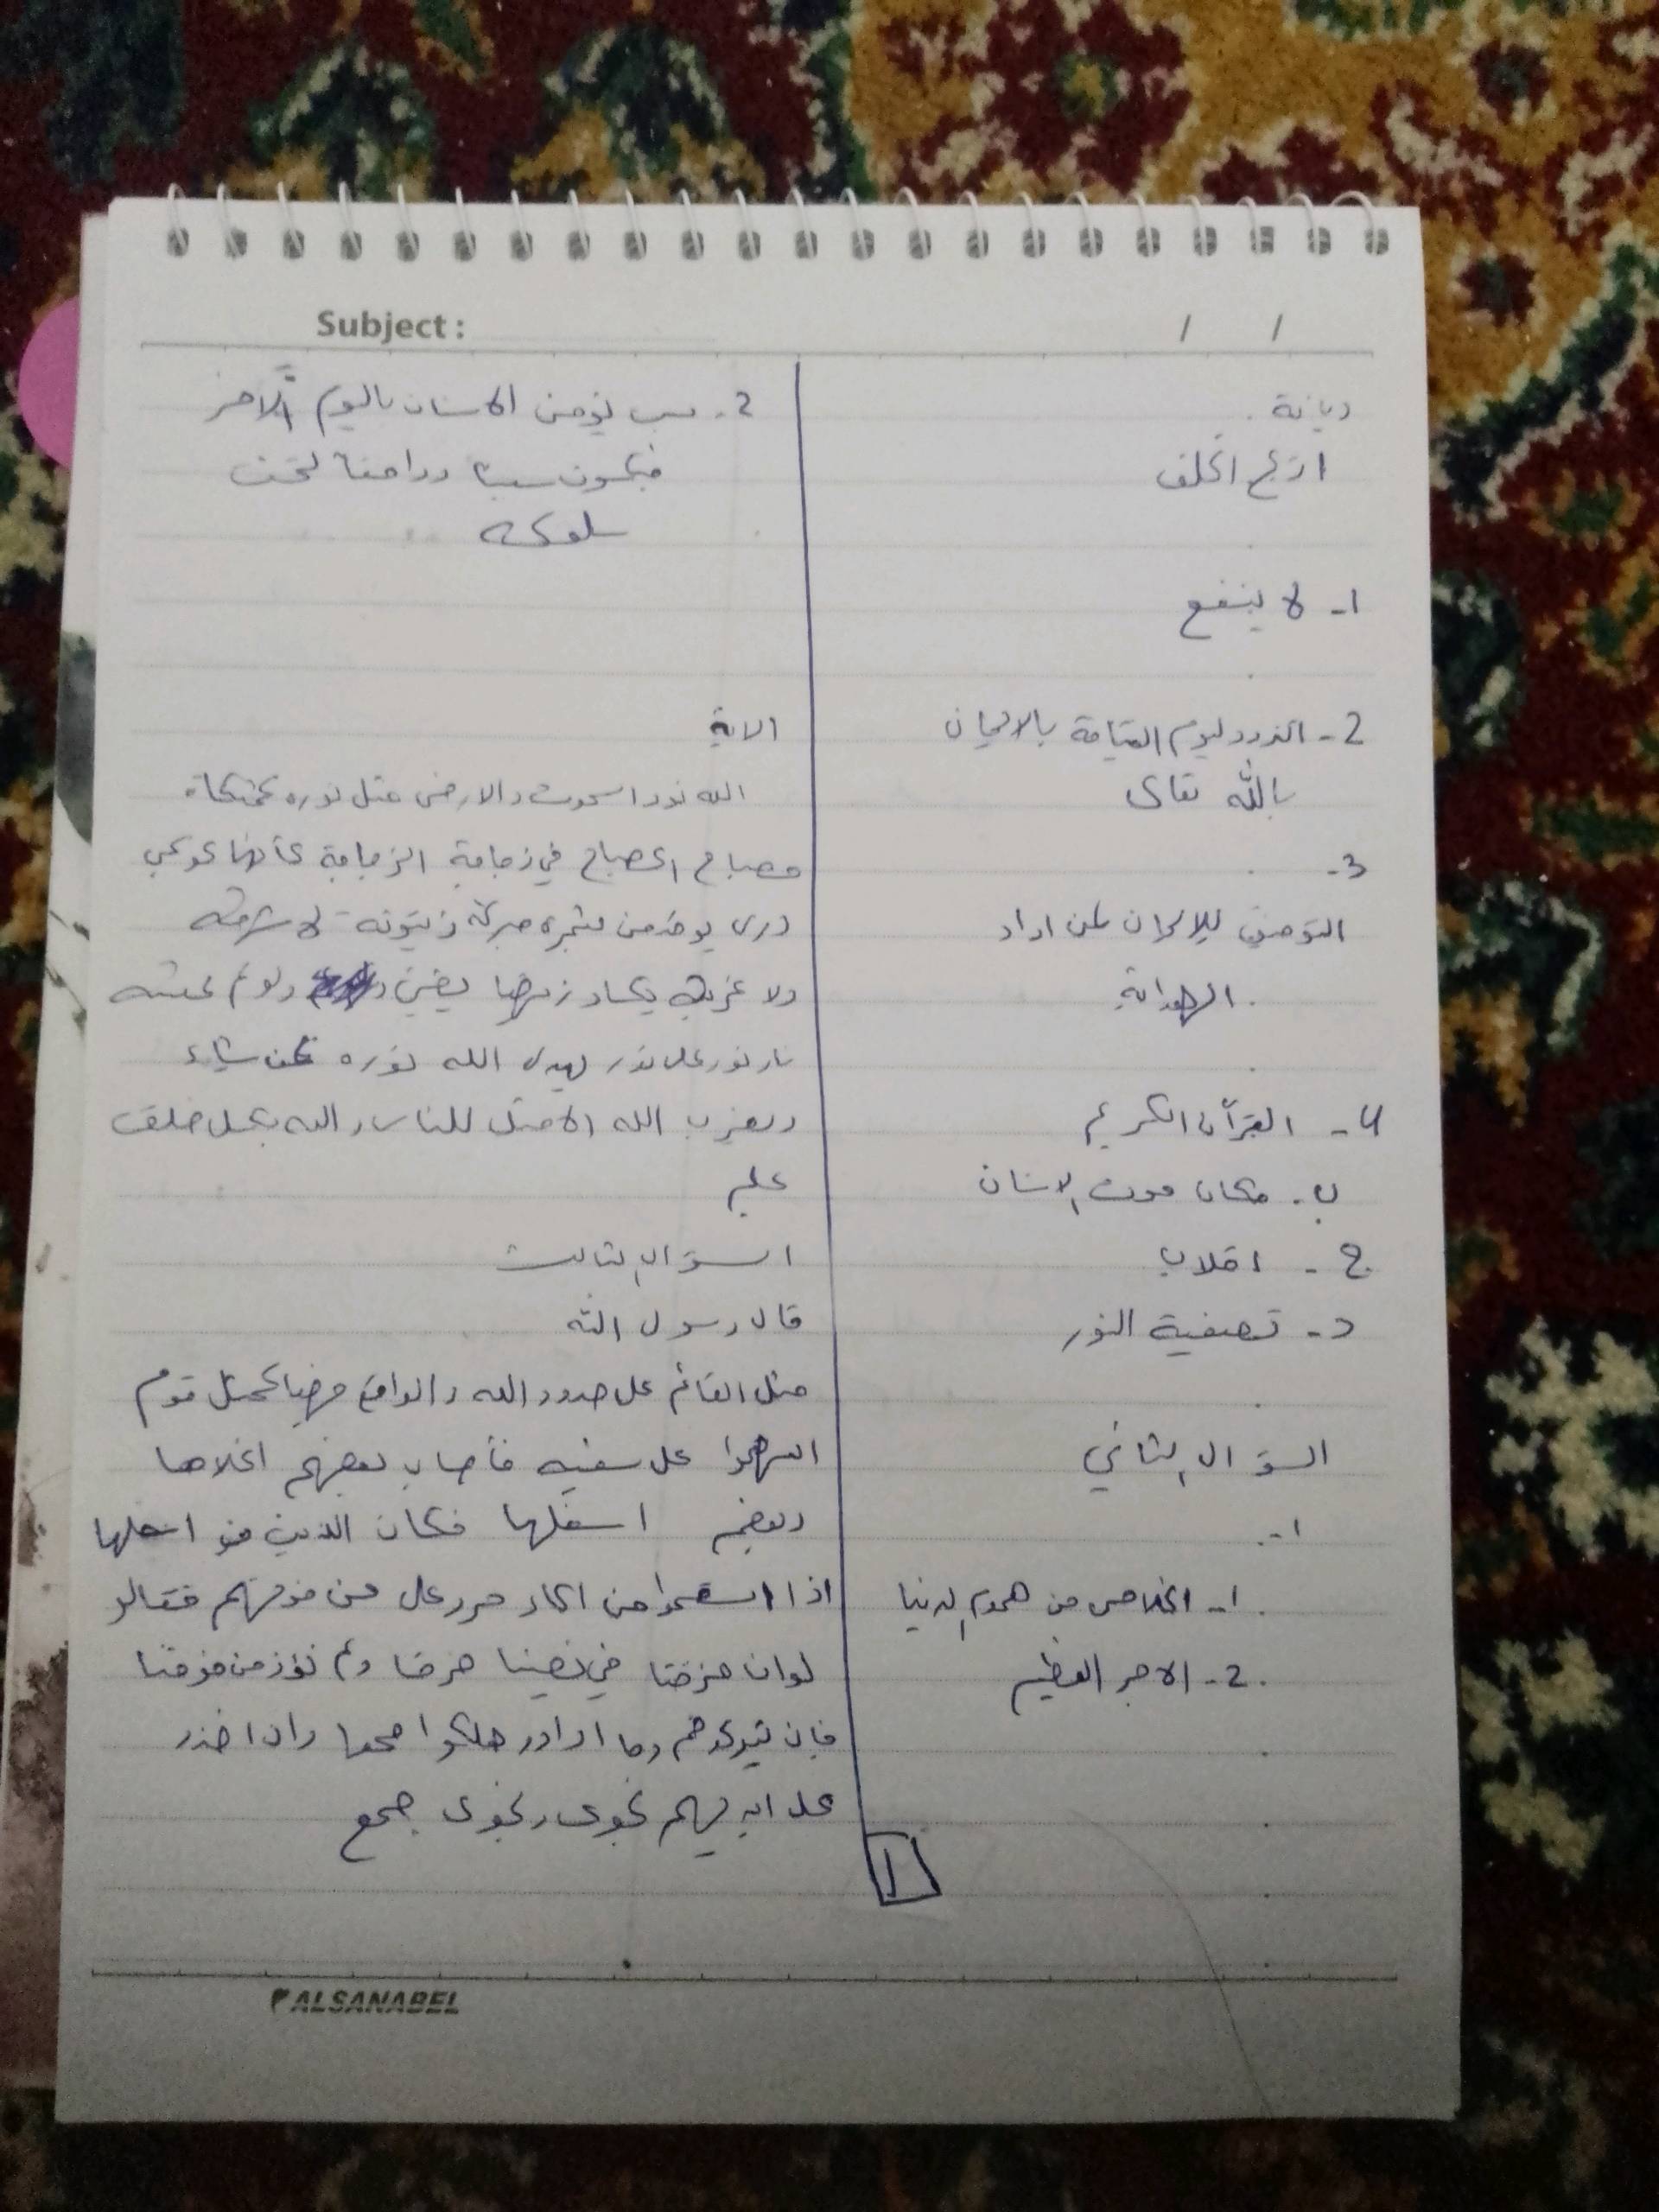 Subject :
/ /
ديانة
1- لا ينفع
2- التزود ليوم القيامة بالايمان
بالله تعالى
3-
التوفيق للإيمان لمن اراد
الهداية
4- القرآن الكريم
ب. مكان موت الانسان
ج - اقلاب
د- تصفية النور
السؤال الثاني
1-
1- الخلاص من هموم الدنيا
2- الاجر العظيم
2- يؤمن الانسان باليوم الآخر
فيكون سببا
سلوكه
الاية
الله نور السموت والارض مثل نوره كمشكاة
مصباح المصباح في زجاجة الزجاجة كأنها كوكب
دري يوقد من شجره مبركة زيتونة لا شرقيه
ولا غربيه يكاد زيتها يضيئ ولو لم تمسه
نار نور على نور يهدي الله نوره من يشاء
ويضرب الله الامثل للناس والله بكل
عليم
السؤال الثالث
قال رسول الله
مثل القائم على حدود الله والواقع فيها كمثل قوم
استهموا على سفينه فأصاب بعضهم اعلاها
وبعضهم اسفلها فكان الذين في اسفلها
اذا استقوا من الماء مرو على من فوقهم فقالو
لو ان خرقنا في نصيبنا خرقا ولم نؤذ من فوقنا
فإن تركوهم وما ارادو هلكوا جمعا وان اخذو
على ايديهم نجوى ونجوى جمع
1
ALSANABEL